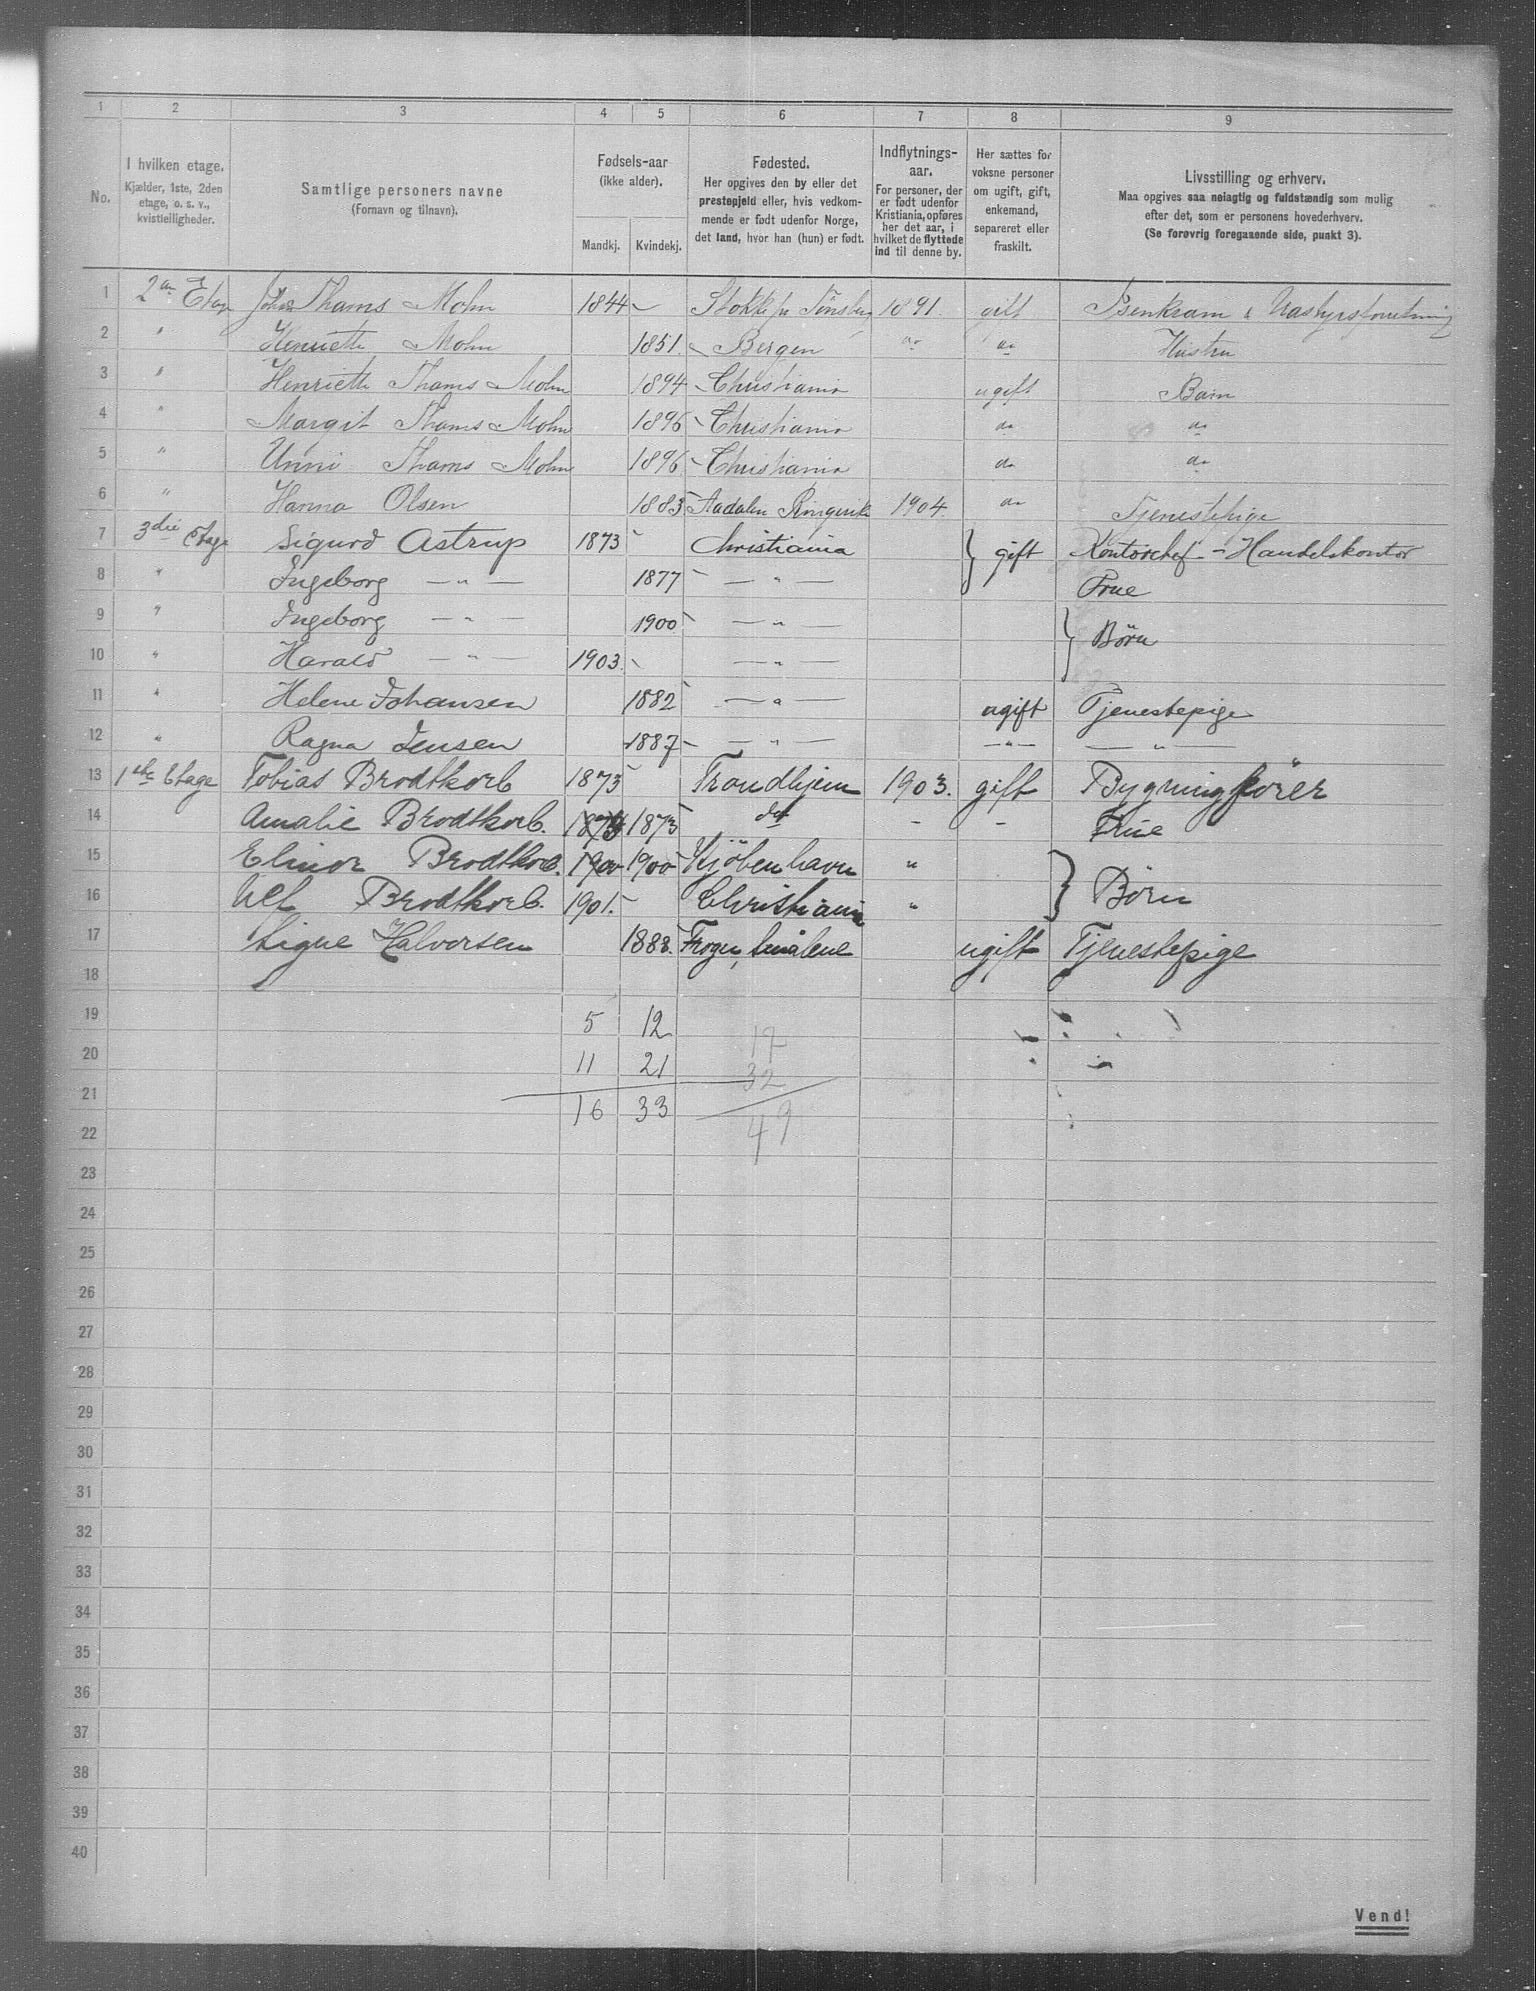 1 2 3 4 5 6 7 8 9
No.
I hvilken etage.
Kjælder, 1ste, 2den
etage, o. s. v.,
kvistleiligheder.
Samtlige personers navne
(Fornavn og tilnavn).
Fødsels-aar
(ikke alder).
Mandkj. Kvindekj.
Fødested.
Her opgives den by eller det
prestegjeld eller, hvis vedkom-
mende er født udenfor Norge,
det land, hvor han (hun) er født.
Indflytnings-
aar.
For personer, der
er født udenfor
Kristiania, opføres
her det aar, i
hvilket de flyttede
ind til denne by.
Her sættes for
voksne personer
om ugift, gift,
enkemand,
separeret eller
fraskilt.
Livsstilling og erhverv.
Maa opgives saa nøiagtig og fuldstændig som mulig
efter det, som er personens hovederhverv.
(Se forøvrig foregaaende side, punkt 3).
1 2en Etage Thams Mohn 1844 - Stokke pr Tønsberg 1891. gift Isenkram & Udstyrsforretning
2 " Henriette Mohn 1851. - Bergen do do Hustru
3 " Henriette Thams Mohn 1894 - Christiania ugift Barn
4 " Margit Thams Mohn 1896 - Christiania do do
5 " Unni Thams Mohn 1896 - Christiania do do
6 " Hanna Olsen 1883 - Aadalen Ringerik 1904. do Tjenestepige
7 3die Etage Sigurd Astrup 1873 - Christiania } gift Kontorchef - Handelskontor
8 " Ingeborg — " — 1877 - — " — Frue
9 " Ingeborg — " — 1900 - — " — } Børn
10 " Harald — " — 1903. - — " —
11 " Helene Johansen 1882 - — " — ugift Tjenestepige
12 " Ragna Jensen 1887 - — " — — " — — " —
13 1ste Etage Tobias Brodtkorb 1873 - Trondhjem 1903. gift Bygningfører
14 Amalie Brodtkorb. 1873 - do - - Frue
15 Elinor Brodtkorb. 1900 1900 - Kjøbenhavn " } Børn
16 Ulf Brodtkorb. 1901. - Christiania "
17 Signe Halvorsen 1888. Frogn, Smålene ugift Tjenestepige
18
19 5 12
17
20 11 21
32
21 16 33
49
22
23
24
25
26
27
28
29
30
31
32
33
34
35
36
37
38
39
40
Vend!